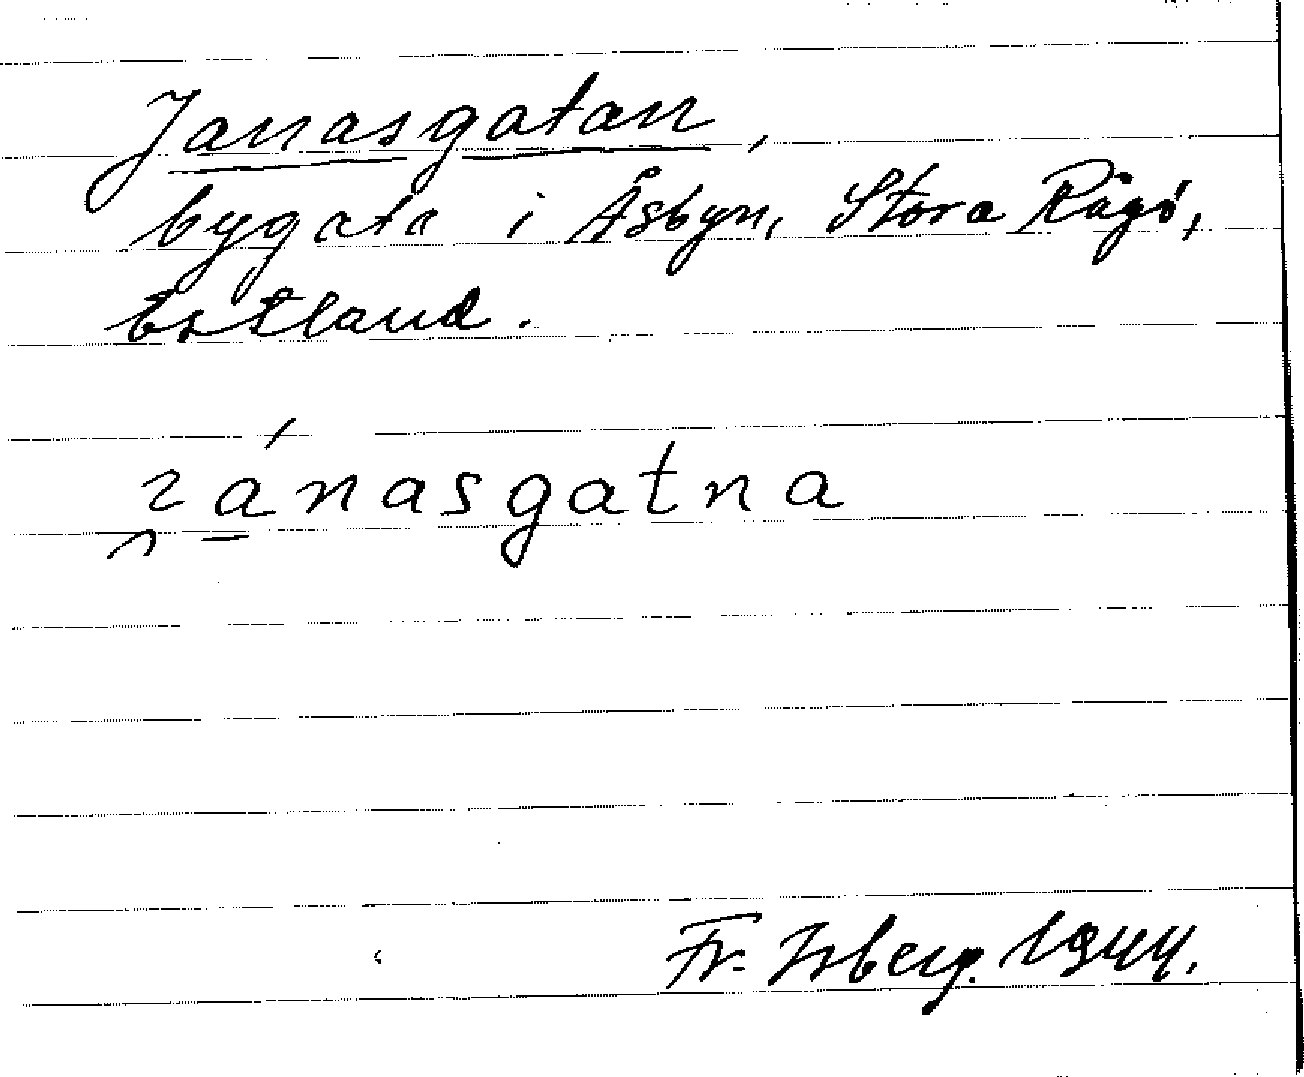 Janasgatan,
bygata i Åsbyn, Stora Rågö,
Estland.
ɿánasgatna
Fr. Isberg. 1944.